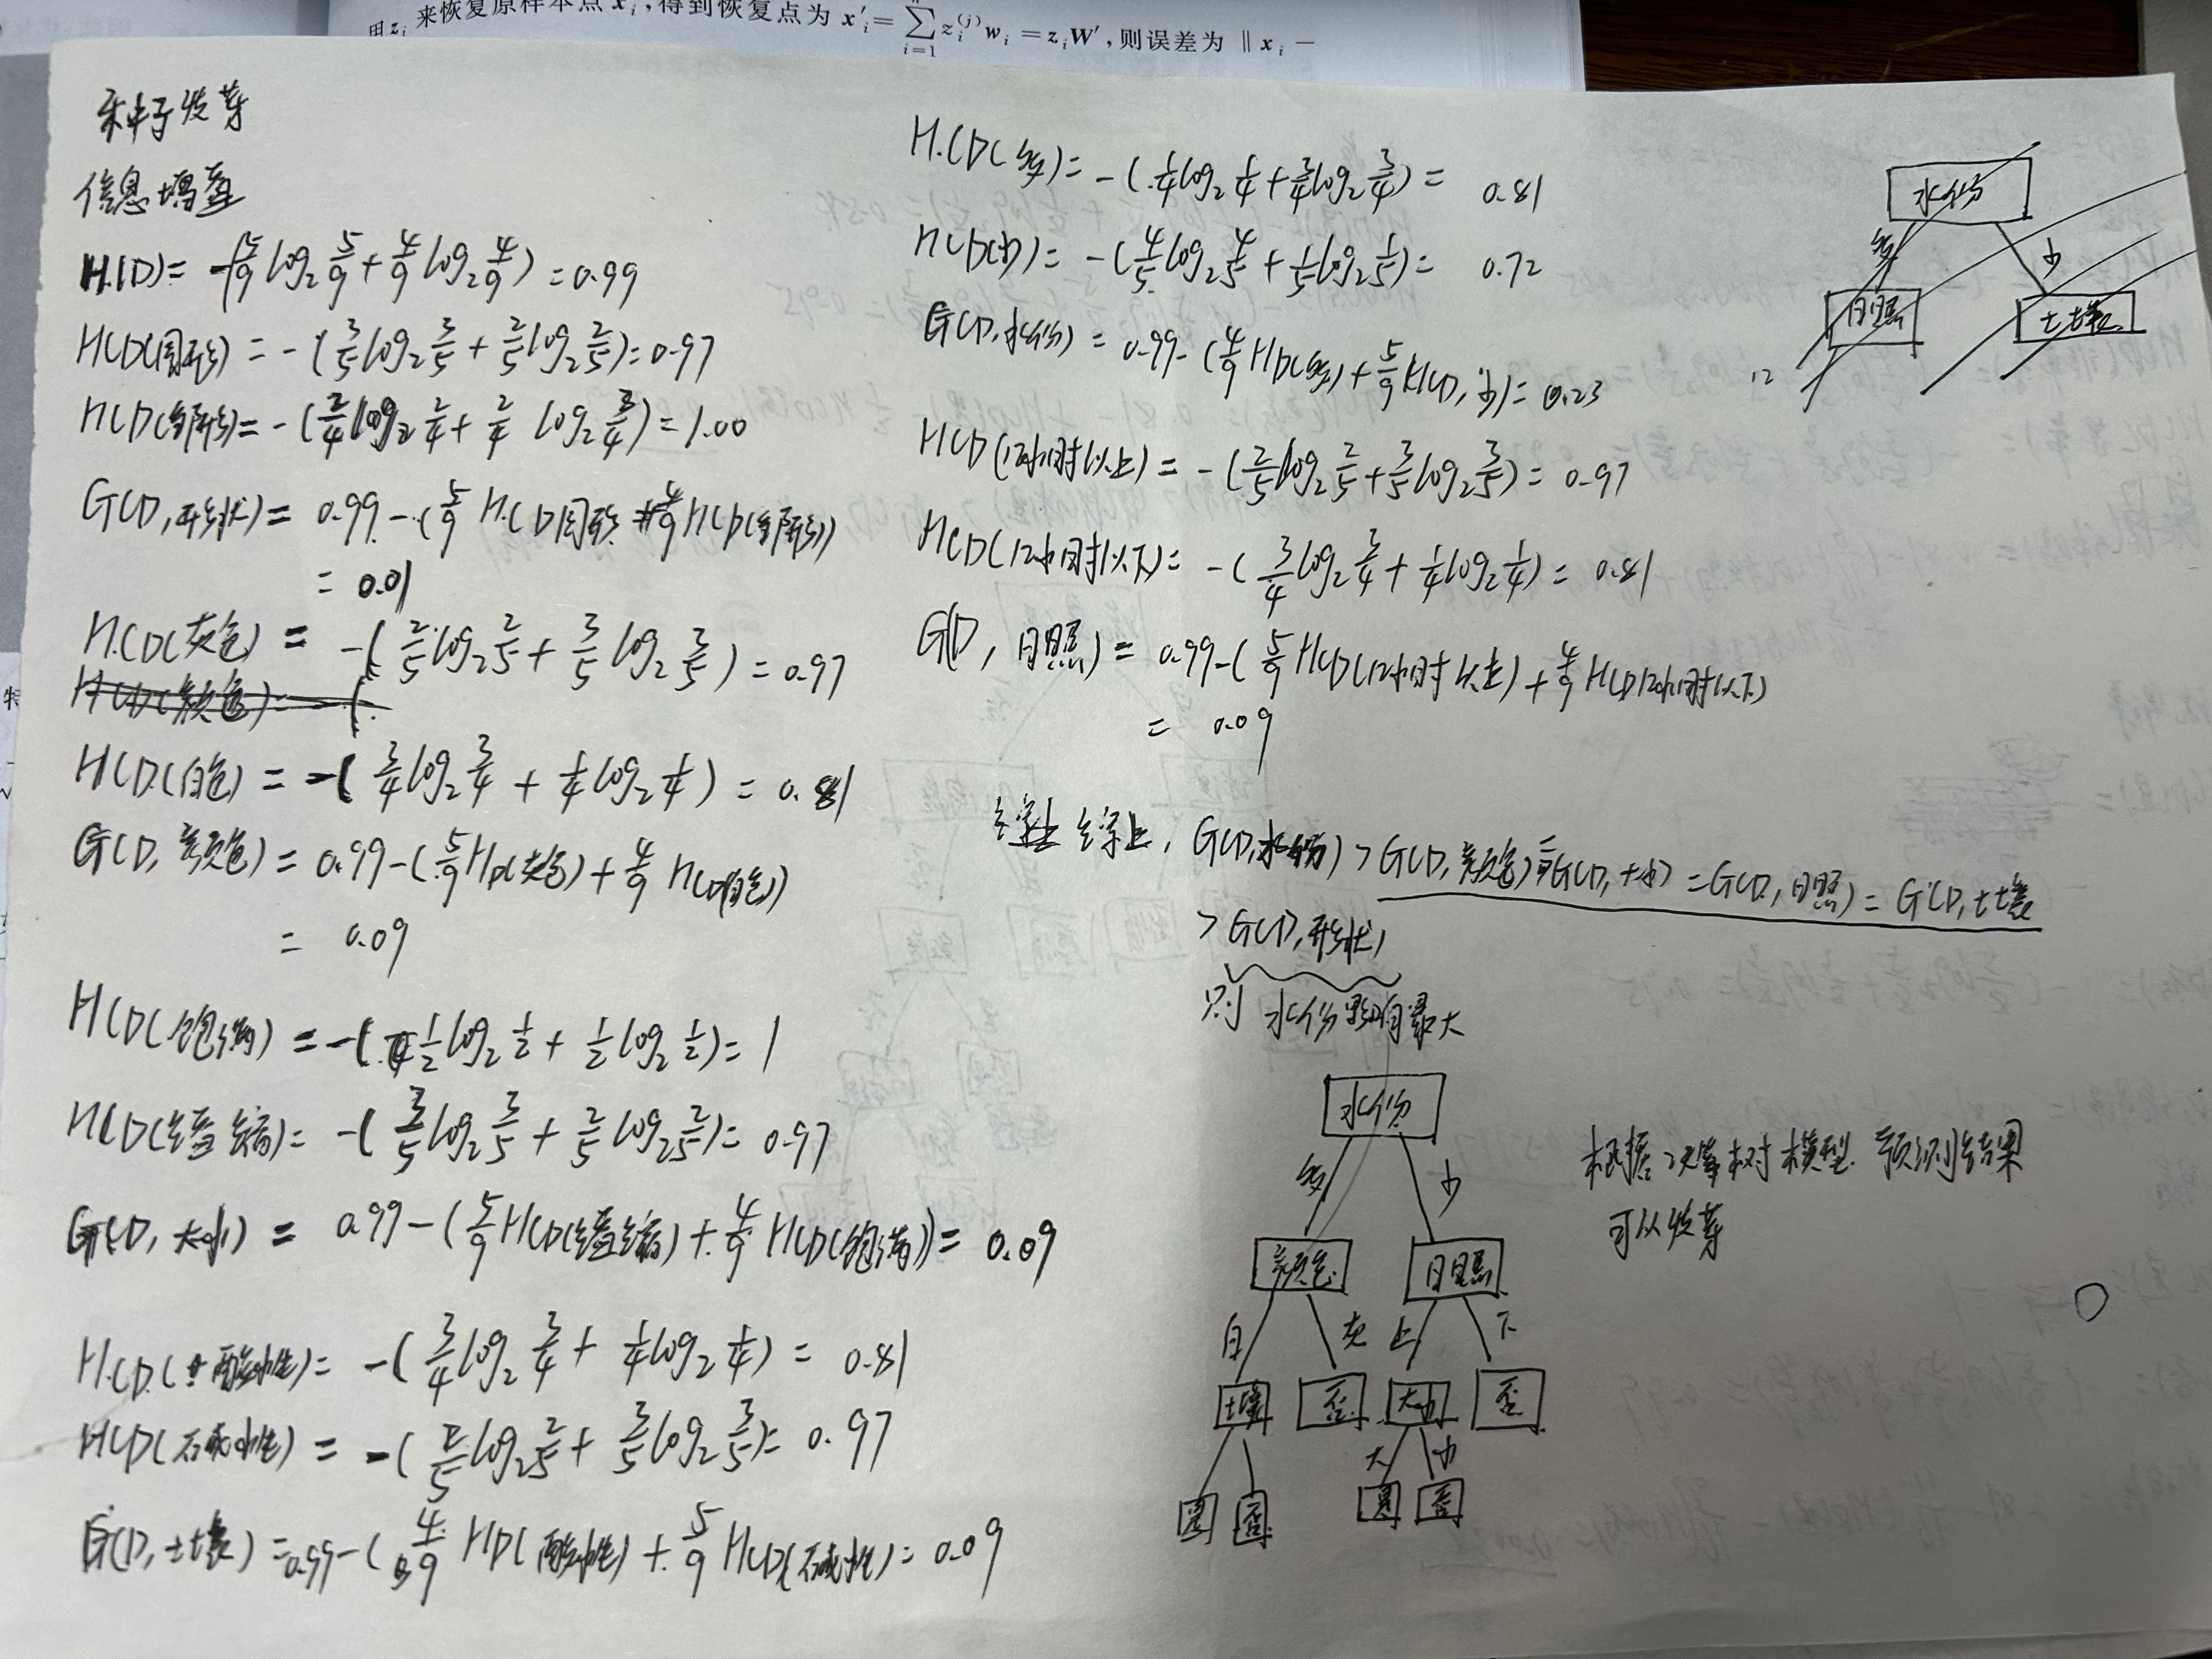 用 zᵢ 来恢复原样本点 xᵢ,得到恢复点为 x′ᵢ = Σ zᵢ⁽ʲ⁾ wᵢ = zᵢW′,则误差为 ‖ xᵢ −
i=1
种子发芽
信息增益
H(D)= -(5/9 log₂ 5/9 + 4/9 log₂ 4/9) = 0.99
H(D(圆形) = -(3/5 log₂ 3/5 + 2/5 log₂ 2/5) = 0.97
H(D( = -(2/4 log₂ 2/4 + 2/4 log₂ 2/4) = 1.00
G(D,形状) = 0.99 - (5/9 H(D圆形 + 4/9 H(D(
= 0.01
H(D(灰色) = -(2/5 log₂ 2/5 + 3/5 log₂ 3/5) = 0.97
H(D(颜色) = -(
H(D(白色) = -(3/4 log₂ 3/4 + 1/4 log₂ 1/4) = 0.81
G(D,颜色) = 0.99 - (5/9 HD(灰色) + 4/9 H(D(白色))
= 0.09
H(D(饱满) = -(1/2 log₂ 1/2 + 1/2 log₂ 1/2) = 1
H(D(蜷缩) = -(3/5 log₂ 3/5 + 2/5 log₂ 2/5) = 0.97
G(D,大小) = 0.99 - (5/9 H(D(蜷缩) + 4/9 H(D(饱满)) = 0.09
H(D(酸性) = -(3/4 log₂ 3/4 + 1/4 log₂ 1/4) = 0.81
H(D(碱性) = -(2/5 log₂ 2/5 + 3/5 log₂ 3/5) = 0.97
G(D,土壤) = 0.99 - (4/9 HD(酸性) + 5/9 H(D(碱性) = 0.09
H(D(多) = -(1/4 log₂ 1/4 + 3/4 log₂ 3/4) = 0.81
H(D(少) = -(4/5 log₂ 4/5 + 1/5 log₂ 1/5) = 0.72
G(D,水份) = 0.99 - (4/9 HD(多) + 5/9 H(D,少) = 0.23
H(D(12小时以上) = -(2/5 log₂ 2/5 + 3/5 log₂ 3/5) = 0.97
H(D(12小时以下) = -(3/4 log₂ 3/4 + 1/4 log₂ 1/4) = 0.81
G(D,日照) = 0.99 - (5/9 H(D(12小时以上) + 4/9 H(D12小时以下)
= 0.09
综上 综上, G(D,水份) > G(D,颜色) = G(D,大小) = G(D,日照) = G(D,土壤
> G(D,形状)
则 水份 最大
水份
多 少
日照 土壤
12
水份
多 少
颜色 日照
白 灰 上 下
土壤 否 大小 否
大 小
是 否 是 否
根据决策树模型 预测结果
可以发芽